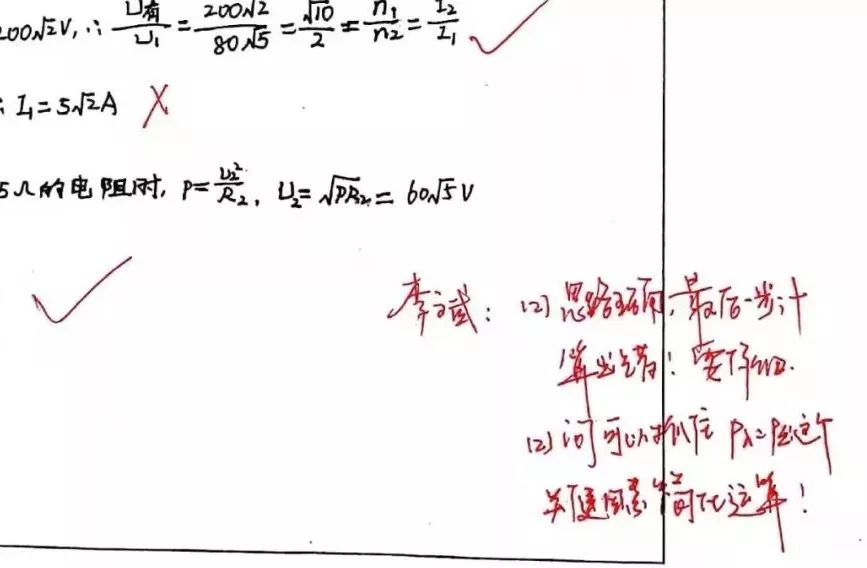 200√2V, ∴ U有/U₁ = 200√2/80√5 = √10/2 = n₁/n₂ = I₂/I₁
: I₁ = 5√2A
5Ω的电阻时, P = U₂²/R₂, U₂ = √PR₂ = 60√5V
李文武: (2) 思路正确, 最后一步计
算出错! 要仔细.
(2) 问可以抓住 P入=P出这个
关键因素 简化运算!